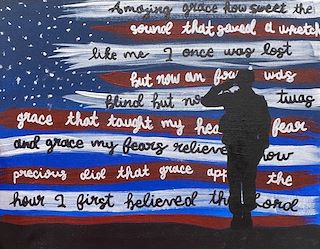 Amazing grace how sweet the
sound that saved a wretch
like me I once was lost
but now am fou was
blind but no twas
grace that taught my hea fear
and grace my fears relieve how
precious did that grace app the
hour I first believed the Lord